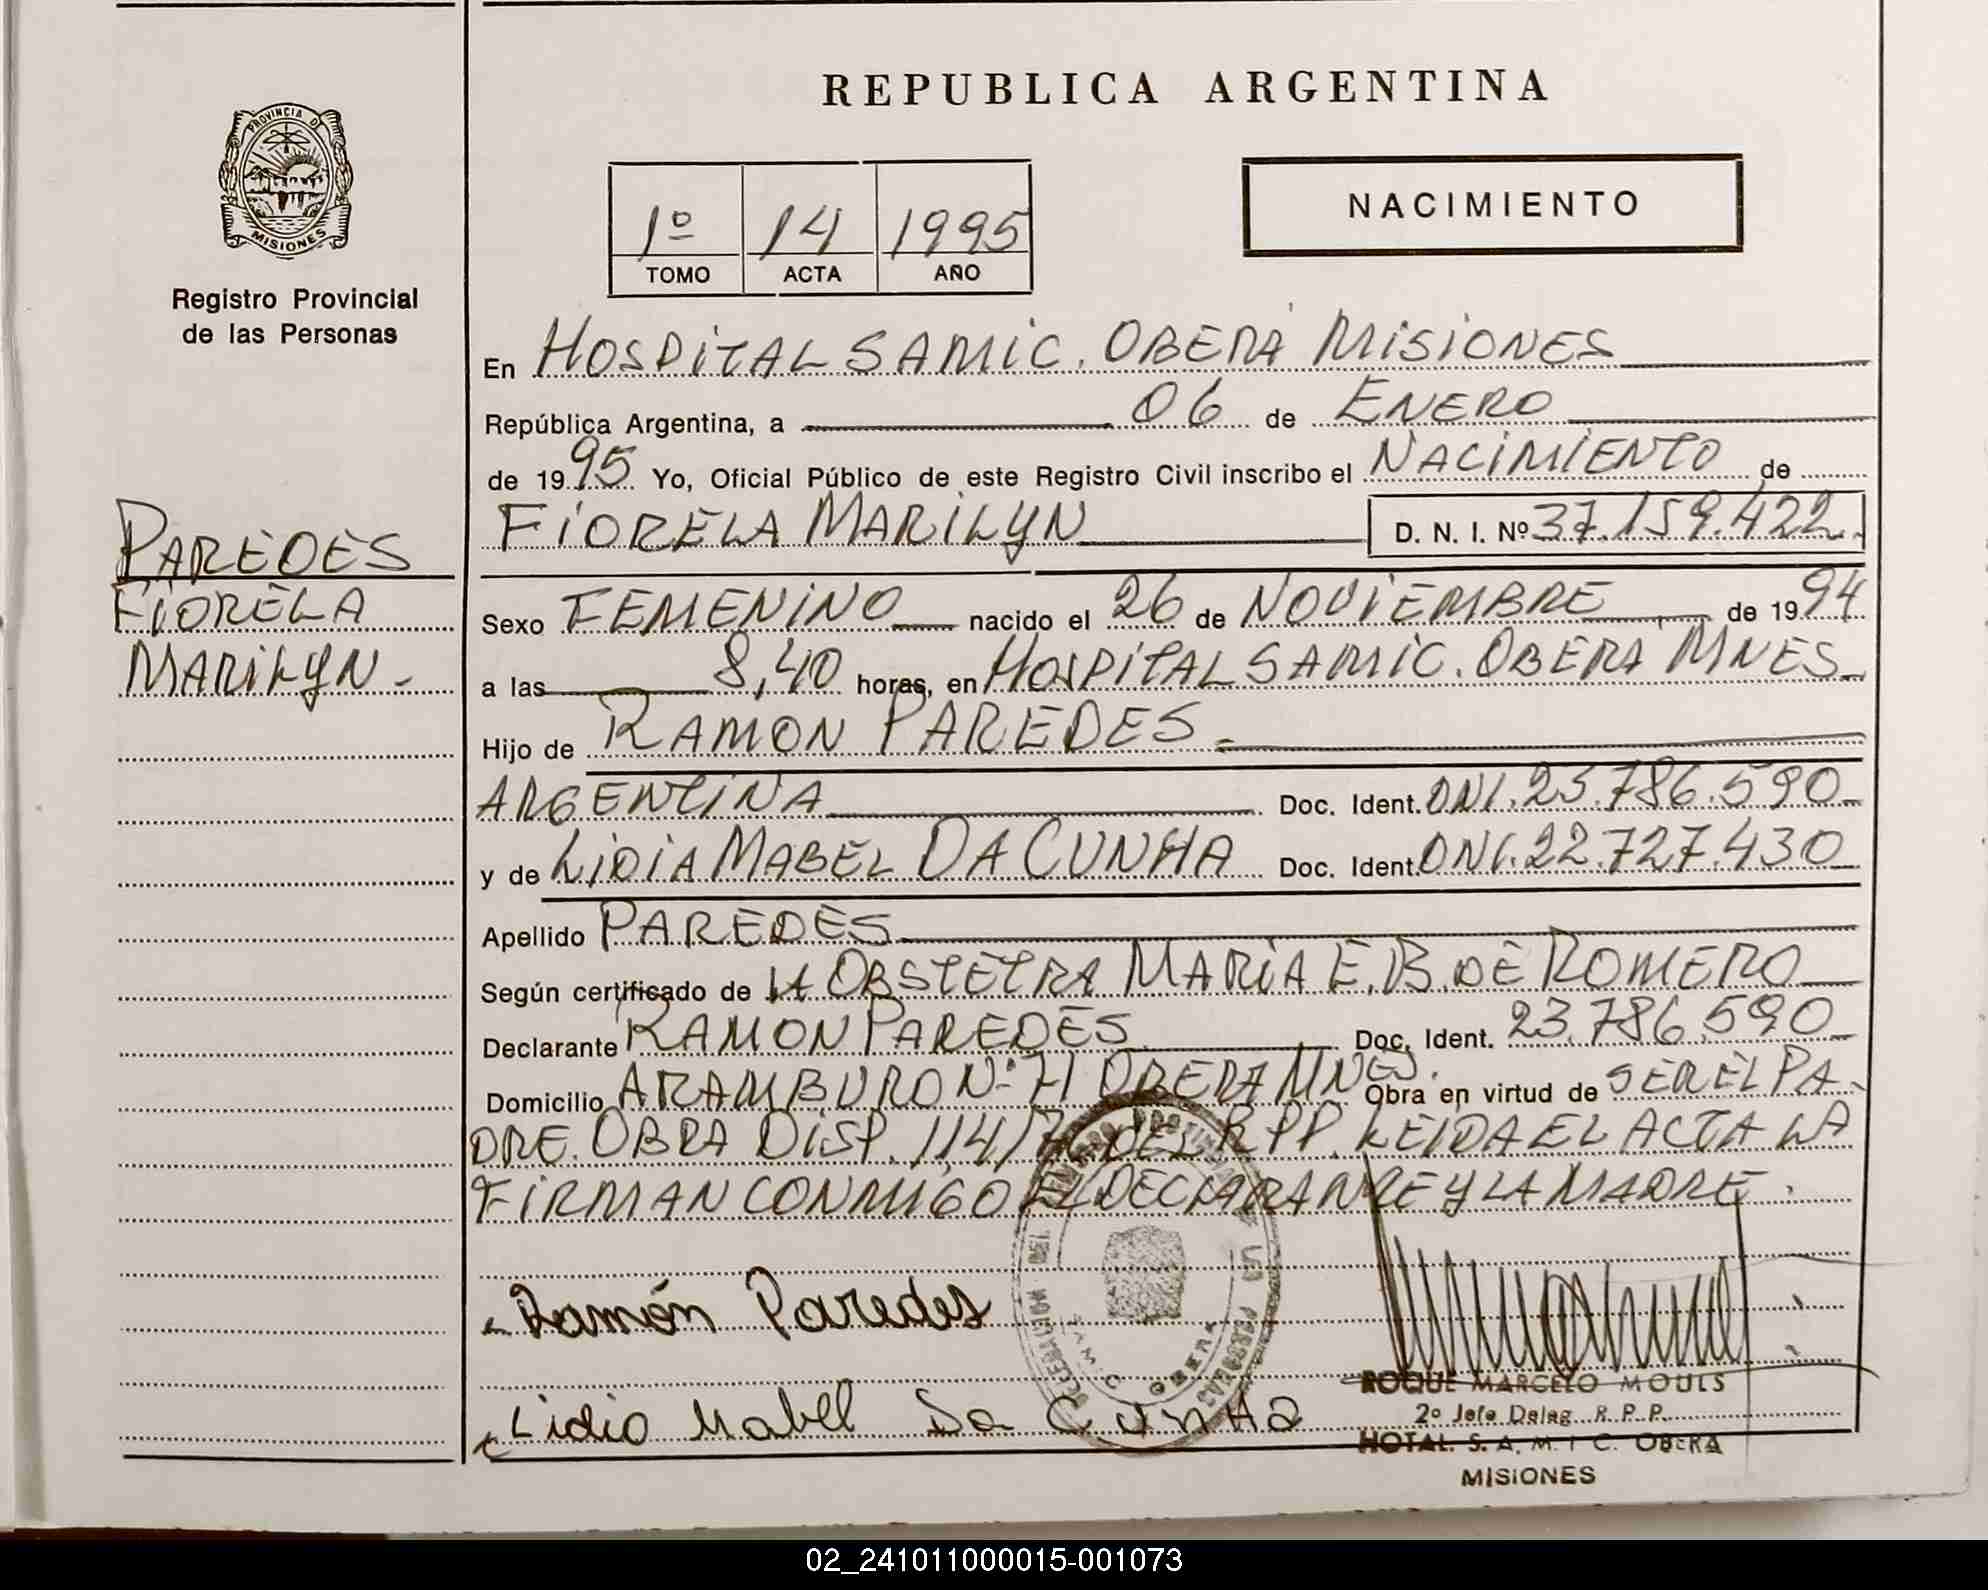 REPUBLICA ARGENTINA
PROVINCIA DE
MISIONES
Registro Provincial
de las Personas
1º 14 1995
TOMO ACTA AÑO
NACIMIENTO
En HOSPITAL SAMIC. OBERÁ MISIONES
República Argentina, a 06 de ENERO
de 1995 Yo, Oficial Público de este Registro Civil inscribo el NACIMIENTO de
FIORELA MARILYN D. N. I. Nº 37.159.422.
PAREDES
FIORELA
MARILYN -
Sexo FEMENINO nacido el 26 de NOVIEMBRE de 1994
a las 8,40 horas, en HOSPITAL SAMIC. OBERA MNES
Hijo de RAMON PAREDES
ARGENTINA Doc. Ident. DNI. 23.786.590
y de LIDIA MABEL DA CUNHA Doc. Ident. DNI. 22.727.430
Apellido PAREDES
Según certificado de LA OBSTETRA MARIA E. B. DE ROMERO
Declarante RAMON PAREDES Doc. Ident. 23.786.590
Domicilio ARAMBURO Nº 71 OBERA MNES. Obra en virtud de SER EL PA-
DRE. OBRA DISP. 114/ DEL RPP. LEIDA EL ACTA LA
FIRMAN CONMIGO EL DECLARANTE Y LA MADRE.
Ramón Paredes
Lidia Mabel Da Cunha
ROQUE MARCELO MOULS
2º Jefe Deleg. R. P. P.
HOTAL. S. A. M. I C. OBERA
MISIONES
02_241011000015-001073